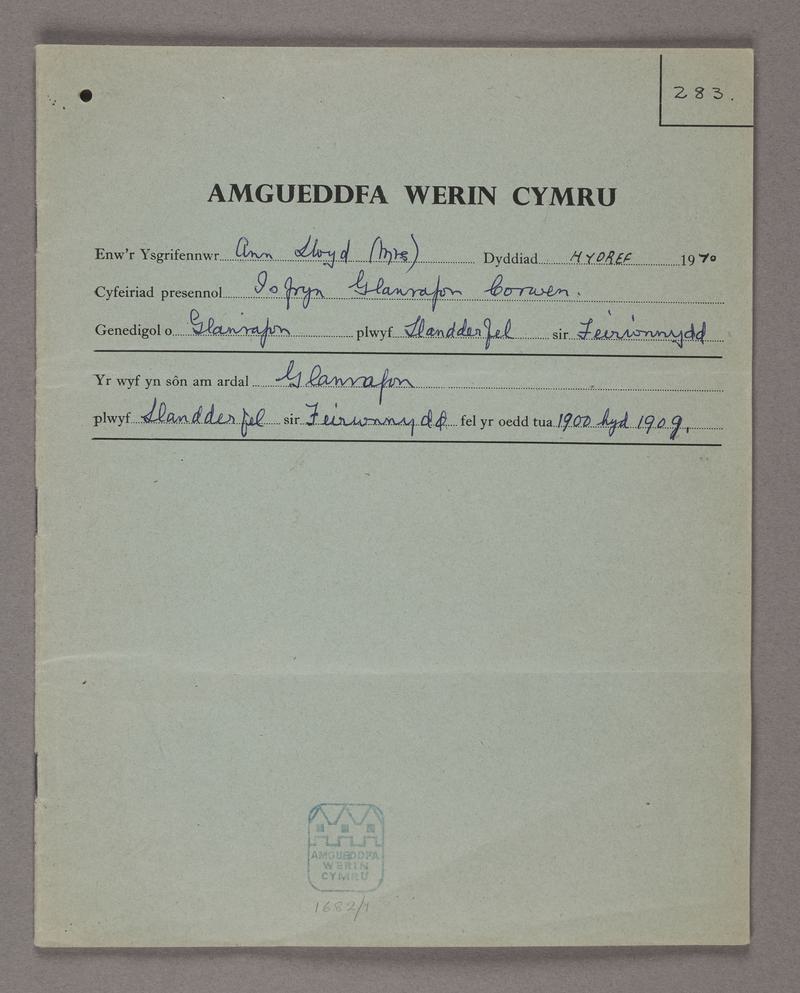 283.
AMGUEDDFA WERIN CYMRU
Enw'r Ysgrifennwr Ann Lloyd (Mrs) Dyddiad HYDREF 1970
Cyfeiriad presennol Isfryn Glanrafon Corwen.
Genedigol o Glanrafon plwyf Llandderfel sir Feirionnydd
Yr wyf yn sôn am ardal Glanrafon
plwyf Llandderfel sir Feirionnydd fel yr oedd tua 1900 hyd 1909.
AMGUEDDFA
WERIN
CYMRU
1682/1